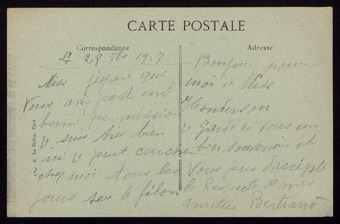 CARTE POSTALE
Correspondance
Adresse
Le 28 1917
Miss j'espère que
Vous avez passé une
bonne permission
je suis très bien
ici je peut couché
chez moi tous les
jours ses le filon
Bonjour pour
moi a Miss
Henderson
je garde de vous un
bon soutenons et
Vous prie d'accepté
le Respects et mes
amitiés Bertrand